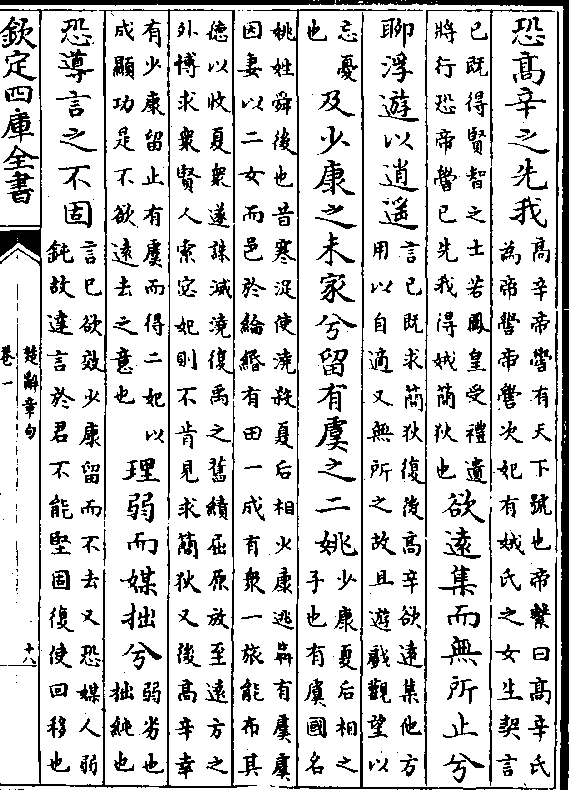 恐髙辛之先我
髙辛帝嚳有天下號也帝繫曰髙辛氏
為帝嚳帝嚳次妃有娀氏之女生契言
已既得賢智之士若鳳皇受禮遺
將行恐帝嚳已先我得娀簡狄也
欲遠集而無所止兮
聊浮遊以逍遥
言已既求簡狄復後髙辛欲遠集他方
用以自適又無所之故且遊戲觀望以
忘憂
也
及少康之未家兮留有虞之二姚
少康夏后相之
子也有虞國名
姚姓舜後也昔寒浞使澆殺夏后相少康逃犇有虞虞
因妻以二女而邑於綸緡有田一成有衆一旅能布其
德以收夏衆遂誅滅澆復禹之舊績屈原放至遠方之
外博求衆賢人索宓妃則不肯見求簡狄又後髙辛幸
有少康留止有虞而得二妃以
成顯功是不欲遠去之意也
理弱而媒拙兮
弱劣也
拙鈍也
恐導言之不固
言已欲效少康留而不去又恐媒人弱
鈍故達言於君不能堅固復使回移也
欽定四庫全書
楚辭章句
卷一
十八